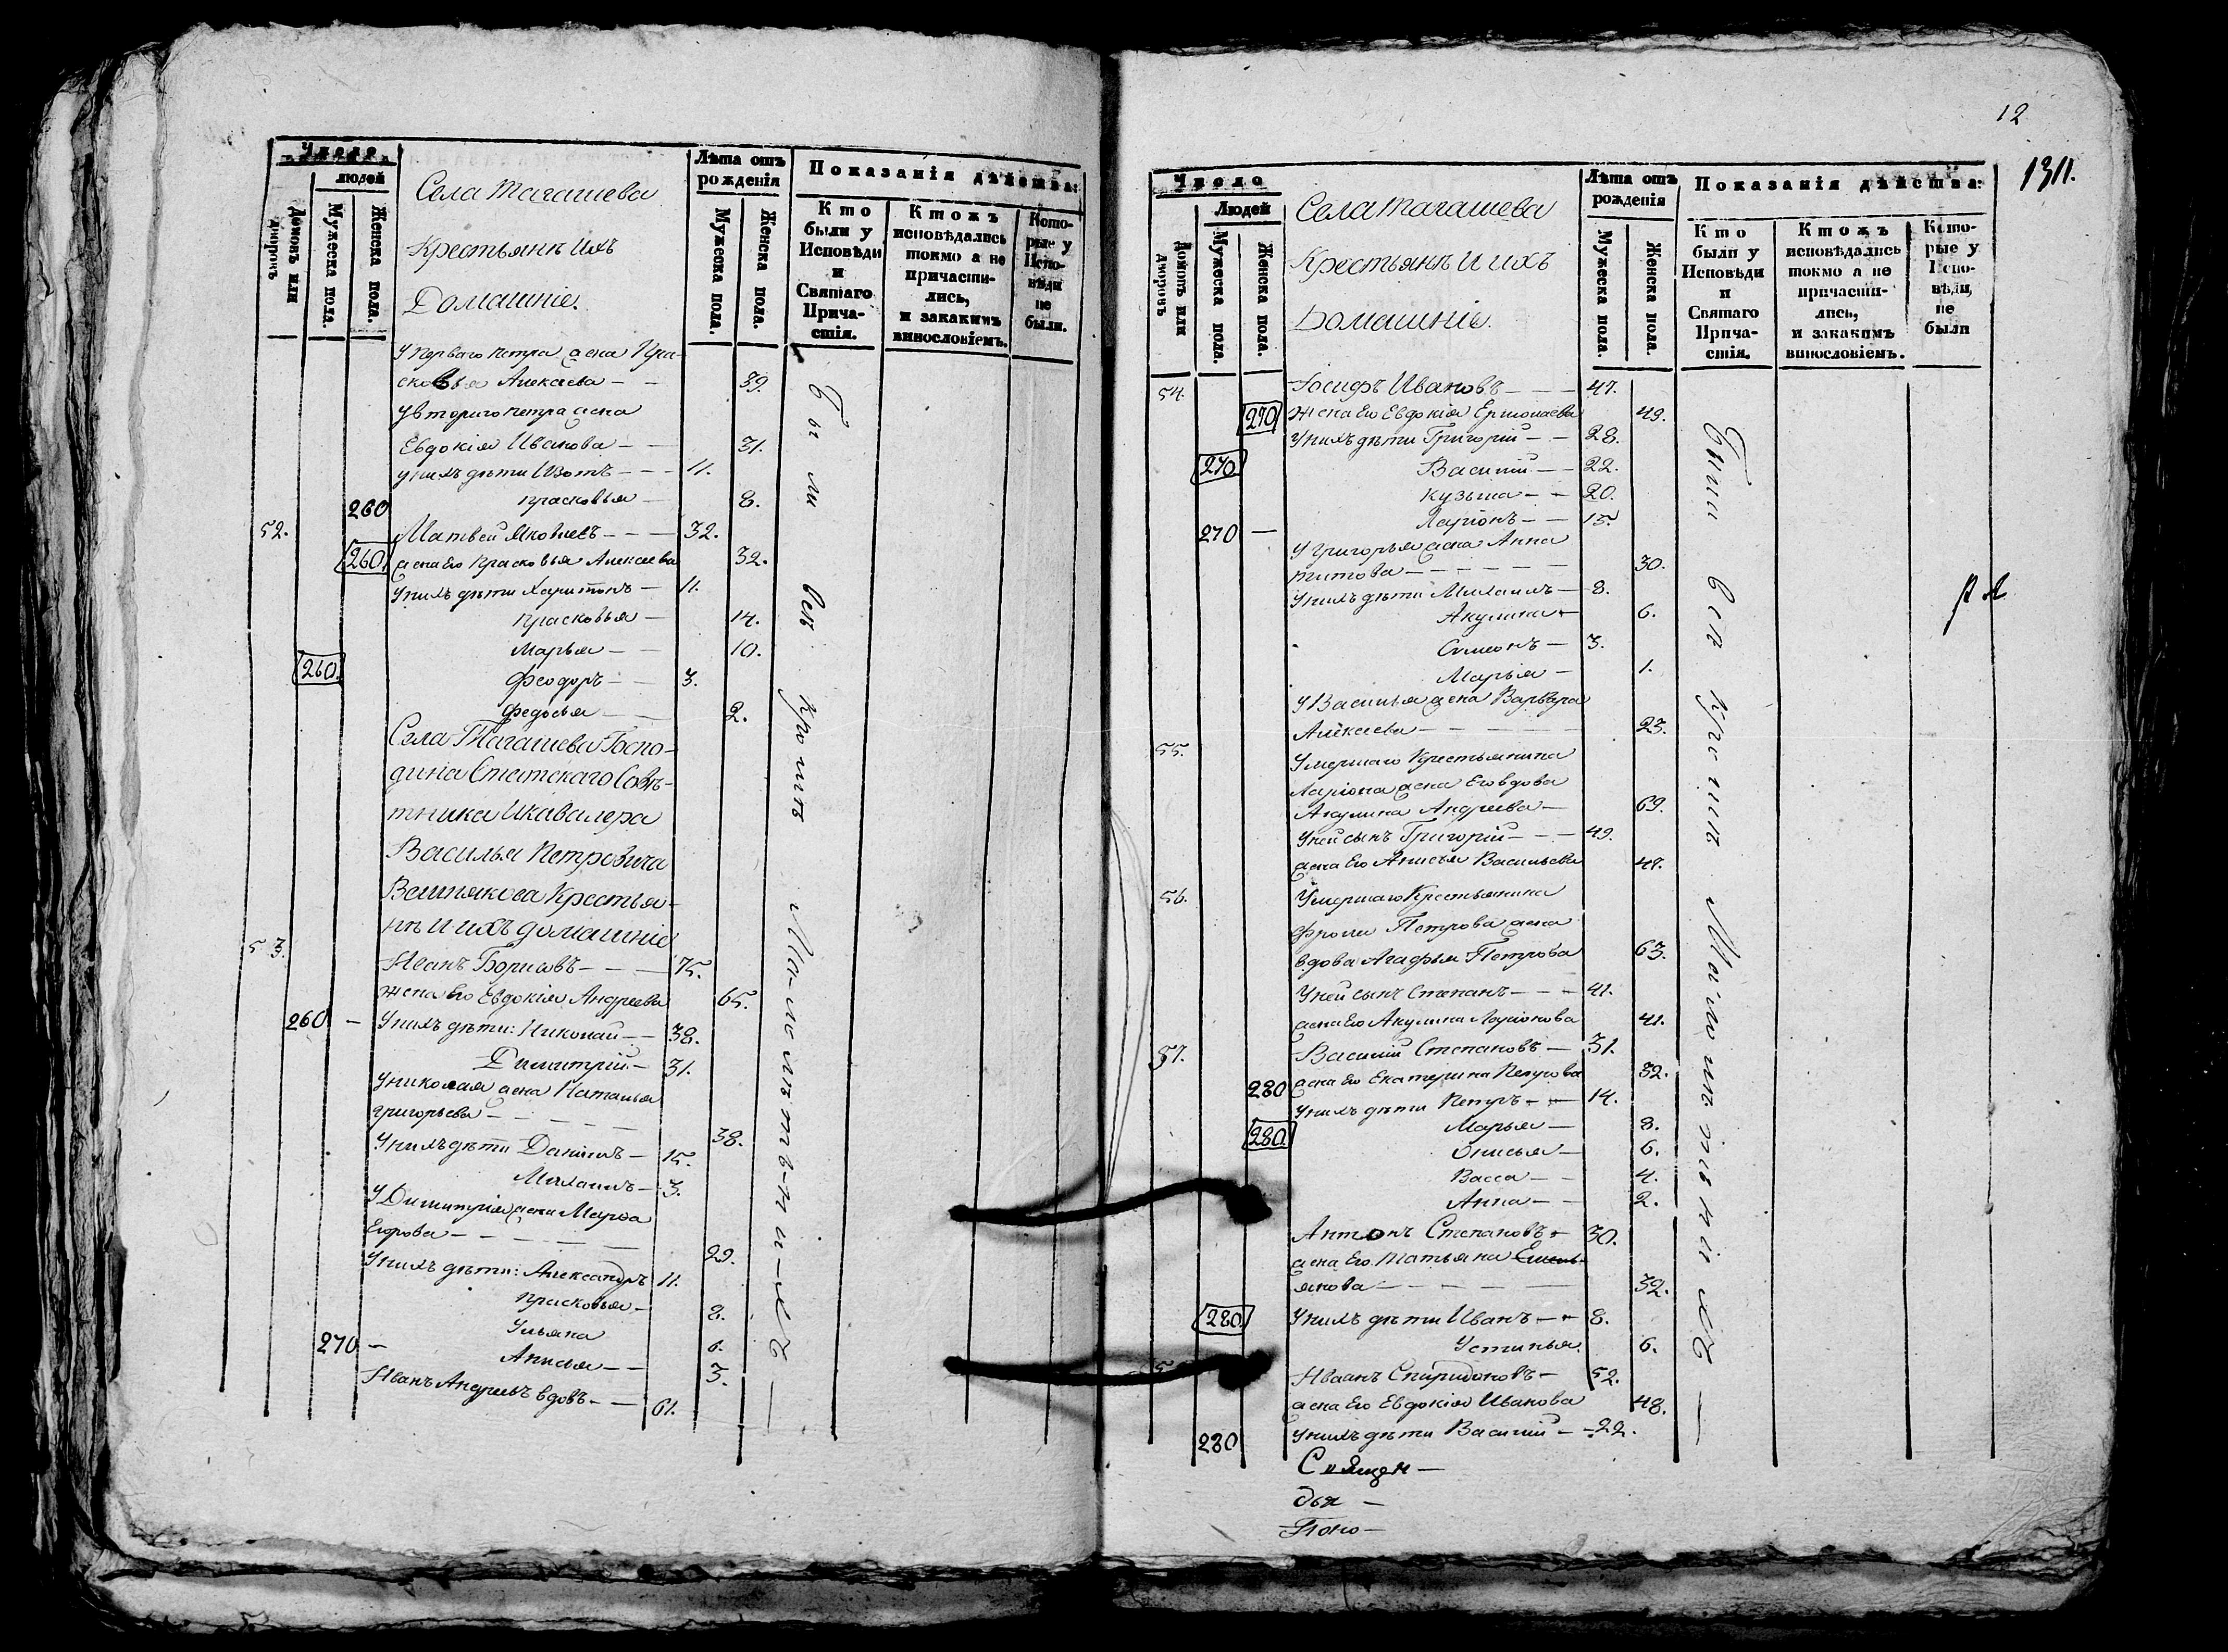 Число
людей
Домовъ или дворовъ
Мужеска пола.
Женска пола.
Села Тагашева
Крестьянѣ Ихъ
Домашніе.
Лѣта отъ рожденія
Мужеска пола.
Женска пола.
Показанія дѣйства:
Кто были у Исповѣди и Святаго Прича-стія.
Ктожъ исповѣдались токмо а не причасти-лись, и закакимъ винословіемъ.
Кото-рые у Испо-вѣди не были.
У перваго Петра жена Пра-
сковья Алексева — — 39.
У втораго петра жена
Евдокія Иванова — — 31.
у нихъ дѣти Изотъ — — — 11.
прасковья — 8.
260
52. Матвей Яковлевъ — — — 32.
260 жена Его Прасковья Алексеева 32.
У нихъ дѣти Харитонъ — 11.
Прасковья — 14.
Марья — — 10.
260. Феодоръ — — 3.
Федосья — — 2.
Села Тагашева Госпо-
дина Статскаго Совѣ-
тника Икавалера
Василья Петровича
Вешнякова Крестья-
нѣ И ихъ домашніе
53. Иванъ Борисовъ — — — 75.
жена Его Евдокія Андреева 65.
260 — У нихъ дѣти: Николай — — 38.
Димитрій — 31.
У николая жена Наталья
григорьева — — — — — 38.
У нихъ дѣти Данiилъ — 15.
Михаилъ — 3.
У Димитрія жена Марѳа
Егорова — — — — — — 29.
У нихъ дѣти: Александръ 11.
Прасковья — 8.
Ульяна 6.
270 — Анисья — — 3.
Иванъ Андреевъ вдовъ — — 61.
Были всѣ кромѣ Ма-ло-лѣт-н-и-хъ —
12
1311.
Число
Людей
Домовъ или дворовъ
Мужеска пола.
Женска пола.
Села Тагашева
Крестьянѣ И ихъ
Домашніе.
Лѣта отъ рожденія
Мужеска пола.
Женска пола.
Показанія дѣйства:
Кто были у Исповѣди и Святаго Прича-стія.
Ктожъ исповѣдались токмо а не причасти-лись, и закакимъ винословіемъ.
Кото-рые у Испо-вѣди, не были
54. Іосифъ Ивановъ — — — 47.
270 жена Его Евдокія Ермолаева 49.
У нихъ дѣти Григорій — — 28.
270. Василій — — 22.
Кузьма — — 20.
Ларіонъ — — 15.
270 —
У Григорья жена Анна
титова — — — — — — 30.
У нихъ дѣти Михаилъ — 8.
Акулина — 6.
Симеонъ — 3.
Марья — 1.
У Василья жена Варвара
Алексеева — — — — — 23.
55. Умершаго Крестьянина
Ларіона жена Его вдова
Акулина Андреева — 69.
У ней сынъ Григорій — — — 49.
жена Его Анисья Васильева
56. Умершаго Крестьянина
Петрова жена
вдова Агафья Петрова 63.
У ней сынъ Степанъ — — — 41.
жена Его Акулина Ларіонова 41.
57. Василій Степановъ — 31.
280 жена Его Екатерина 32.
У нихъ дѣти Петръ — — 14.
280. Марья — 8.
Анисья — 6.
Васса — — 4.
Анна — — 2.
Антонъ Степановъ — 30.
жена Его Татьяна Емель-
янова — — — — — 32.
280. У нихъ дѣти Иванъ — — 8.
Устинья. 6.
Иванъ Спиридоновъ — 52.
жена Его Евдокія Иванова 48.
280 У нихъ дѣти Василій — — 22.
Были всѣ кромѣ Малолѣтнихъ —
Священ —
дья —
Поно —